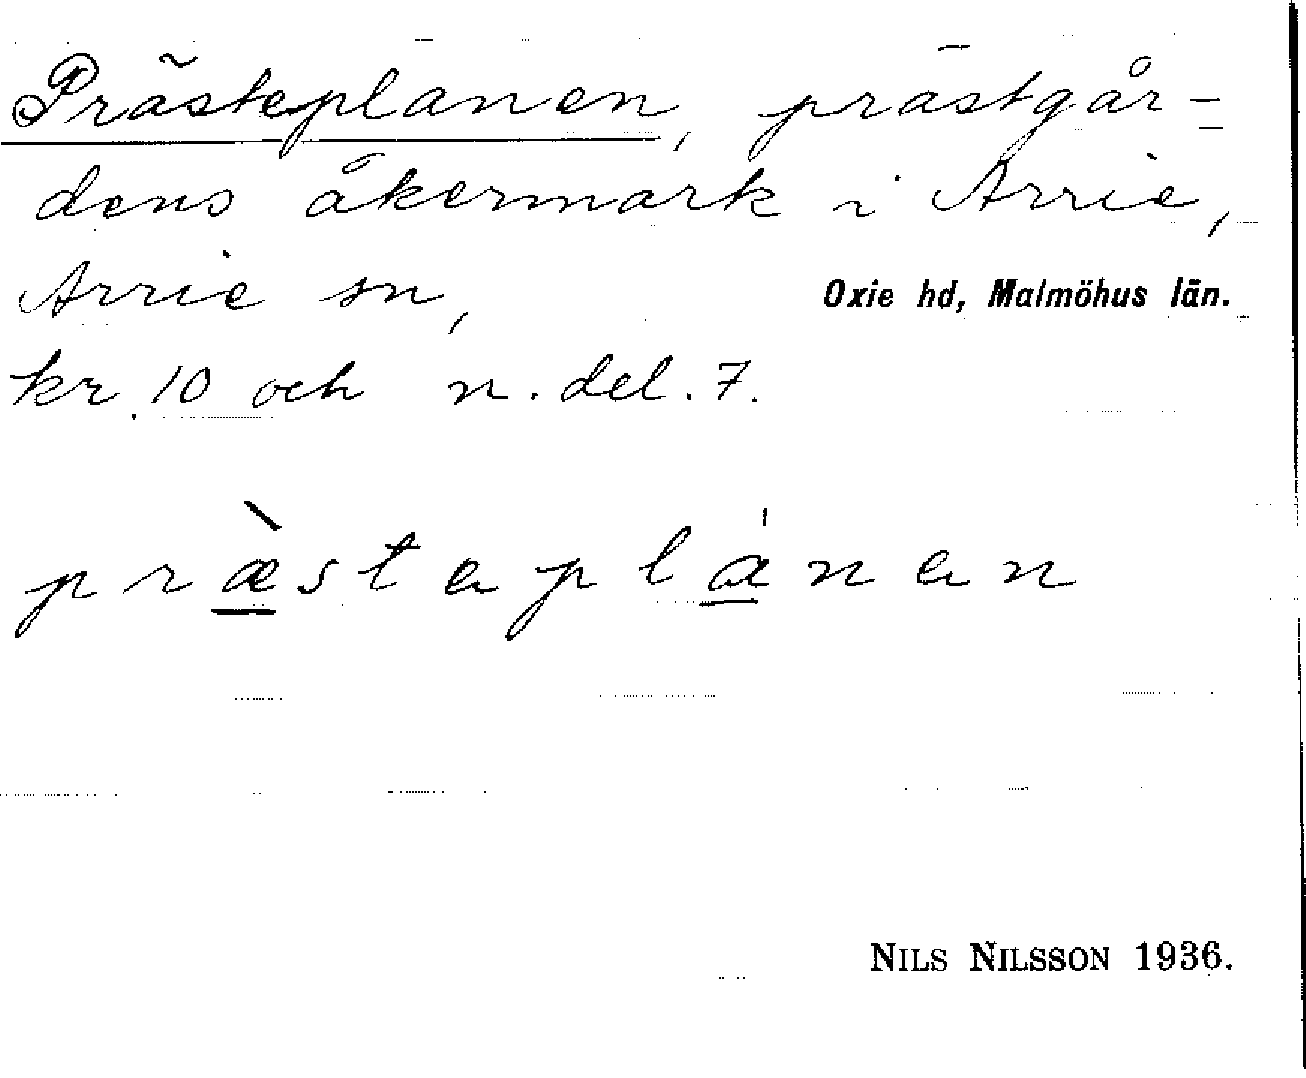 Prästeplanen, prästgår-
dens åkermark i Arrie,
Arrie sn, Oxie hd, Malmöhus län.
kr. 10 och n. del. 7.
præ̀stəplánən
NILS NILSSON 1936.